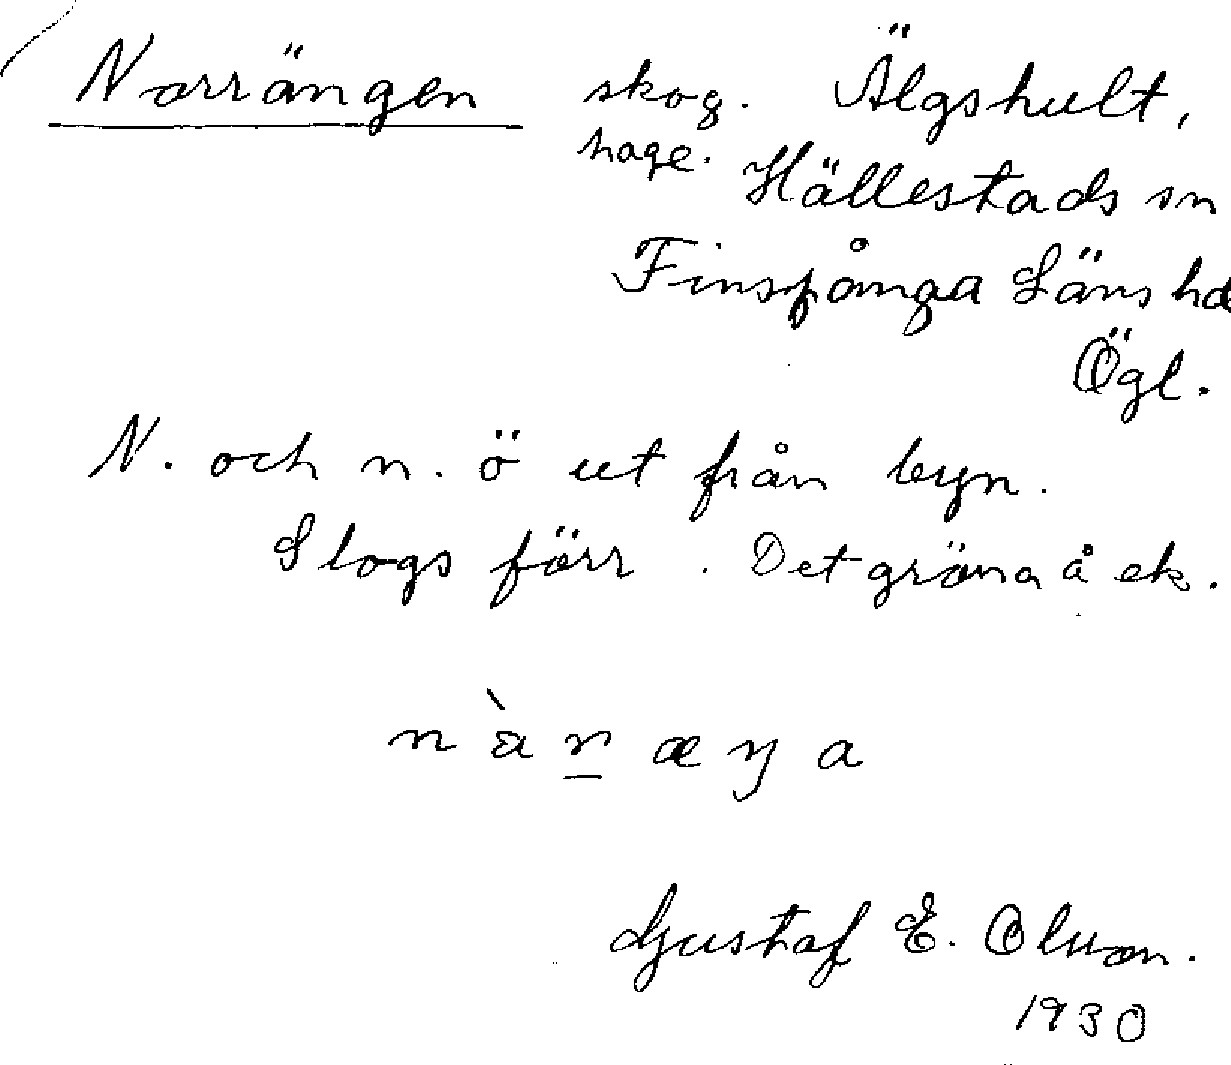 Norrängen skog. Älgshult,
hage. Hällestads sn
Finspånga Läns hd
Ögl.
N. och n. ö ut från byn.
Slogs förr. Det gräna å ek.
n à r æ ŋ a
Gustaf E. Olson.
1930